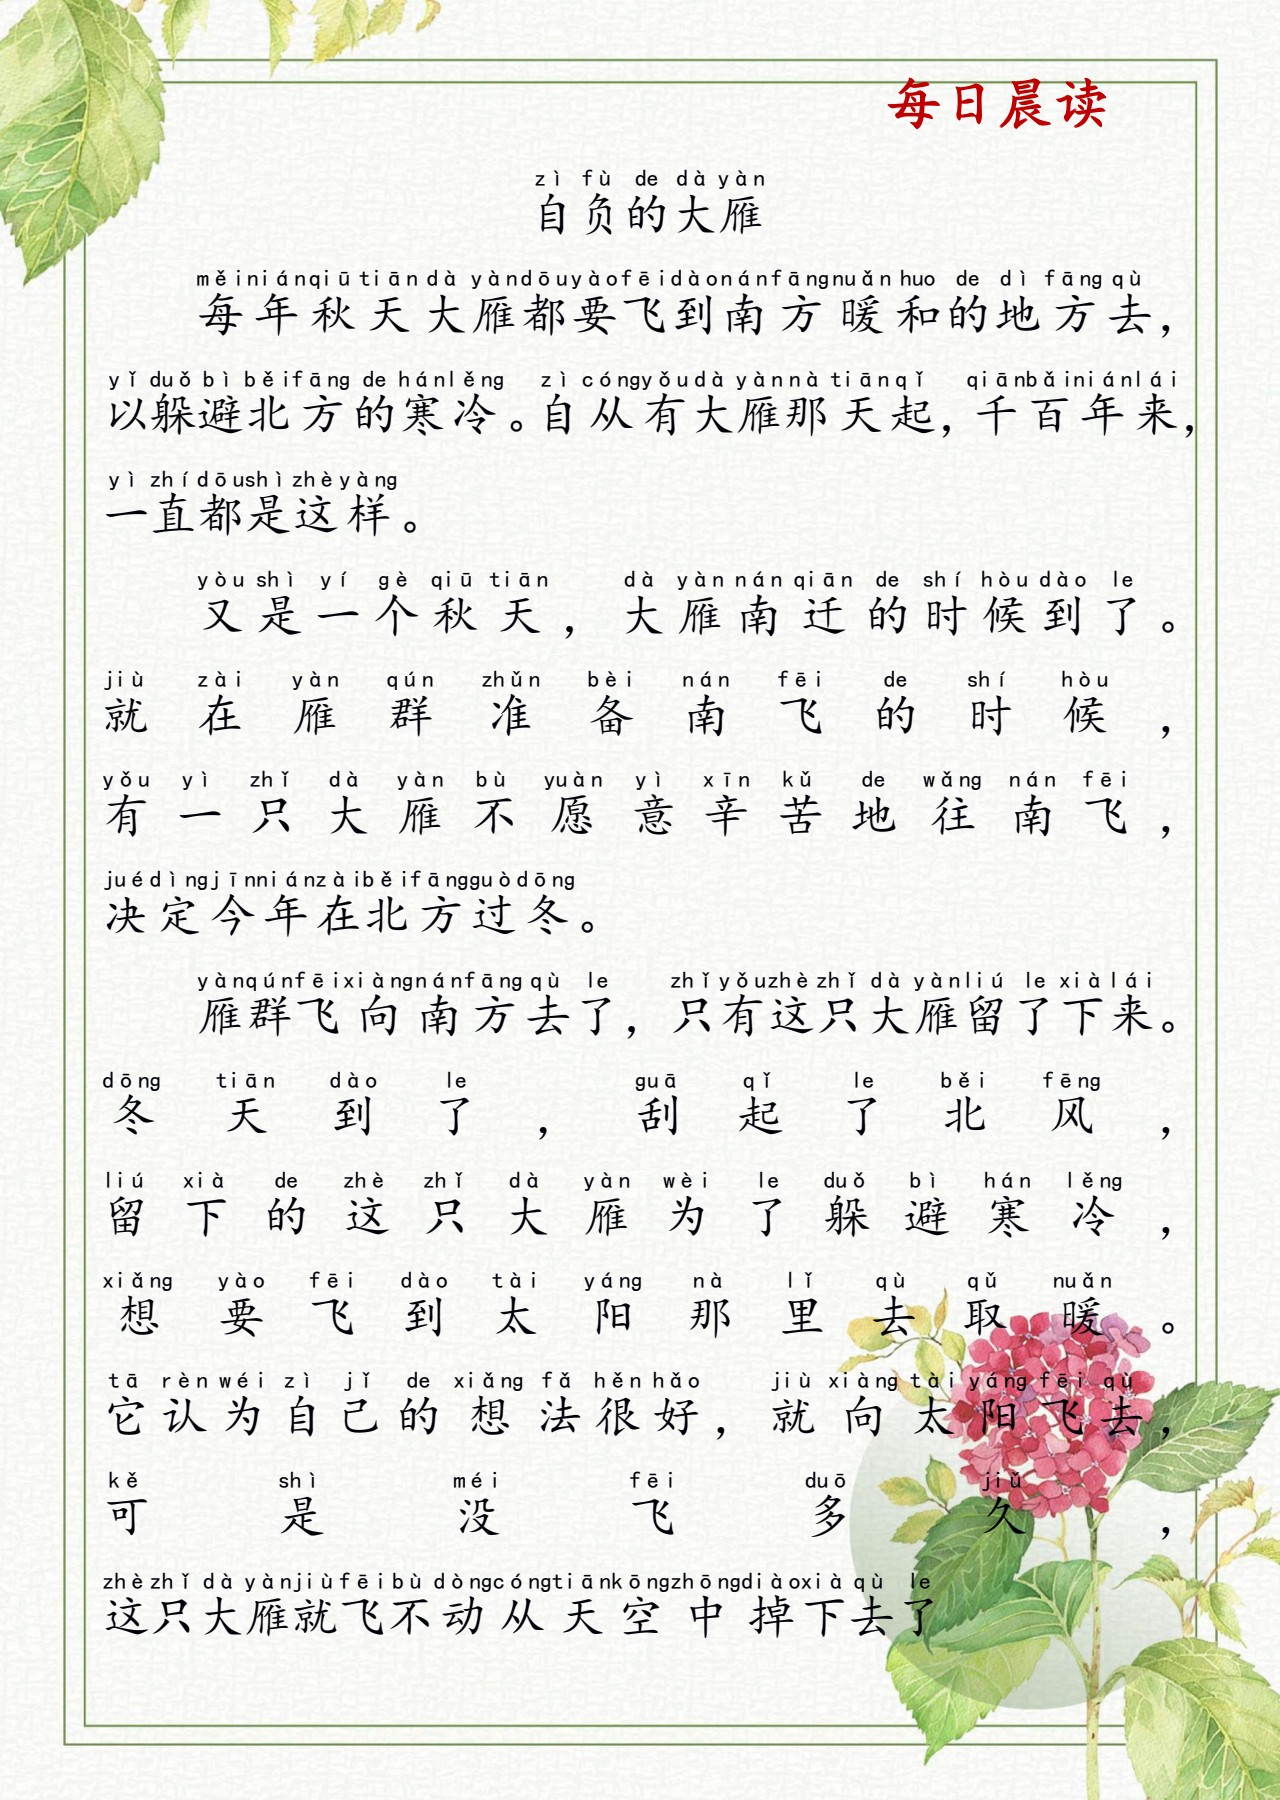 每日晨读
zì fù de dà yàn
自负的大雁
měi nián qiū tiān dà yàn dōu yào fēi dào nán fāng nuǎn huo de dì fāng qù
每年秋天大雁都要飞到南方暖和的地方去，
yǐ duǒ bì běi fāng de hán lěng zì cóng yǒu dà yàn nà tiān qǐ qiān bǎi nián lái
以躲避北方的寒冷。自从有大雁那天起，千百年来，
yì zhí dōu shì zhè yàng
一直都是这样。
yòu shì yí gè qiū tiān dà yàn nán qiān de shí hòu dào le
又是一个秋天，大雁南迁的时候到了。
jiù zài yàn qún zhǔn bèi nán fēi de shí hòu
就在雁群准备南飞的时候，
yǒu yì zhǐ dà yàn bù yuàn yì xīn kǔ de wǎng nán fēi
有一只大雁不愿意辛苦地往南飞，
jué dìng jīn nián zài běi fāng guò dōng
决定今年在北方过冬。
yàn qún fēi xiàng nán fāng qù le zhǐ yǒu zhè zhǐ dà yàn liú le xià lái
雁群飞向南方去了，只有这只大雁留了下来。
dōng tiān dào le guā qǐ le běi fēng
冬天到了，刮起了北风，
liú xià de zhè zhǐ dà yàn wèi le duǒ bì hán lěng
留下的这只大雁为了躲避寒冷，
xiǎng yào fēi dào tài yáng nà lǐ qù qǔ nuǎn
想要飞到太阳那里去取暖。
tā rèn wéi zì jǐ de xiǎng fǎ hěn hǎo jiù xiàng tài yáng fēi qù
它认为自己的想法很好，就向太阳飞去，
kě shì méi fēi duō jiǔ
可是没飞多久，
zhè zhǐ dà yàn jiù fēi bù dòng cóng tiān kōng zhōng diào xià qù le
这只大雁就飞不动从天空中掉下去了